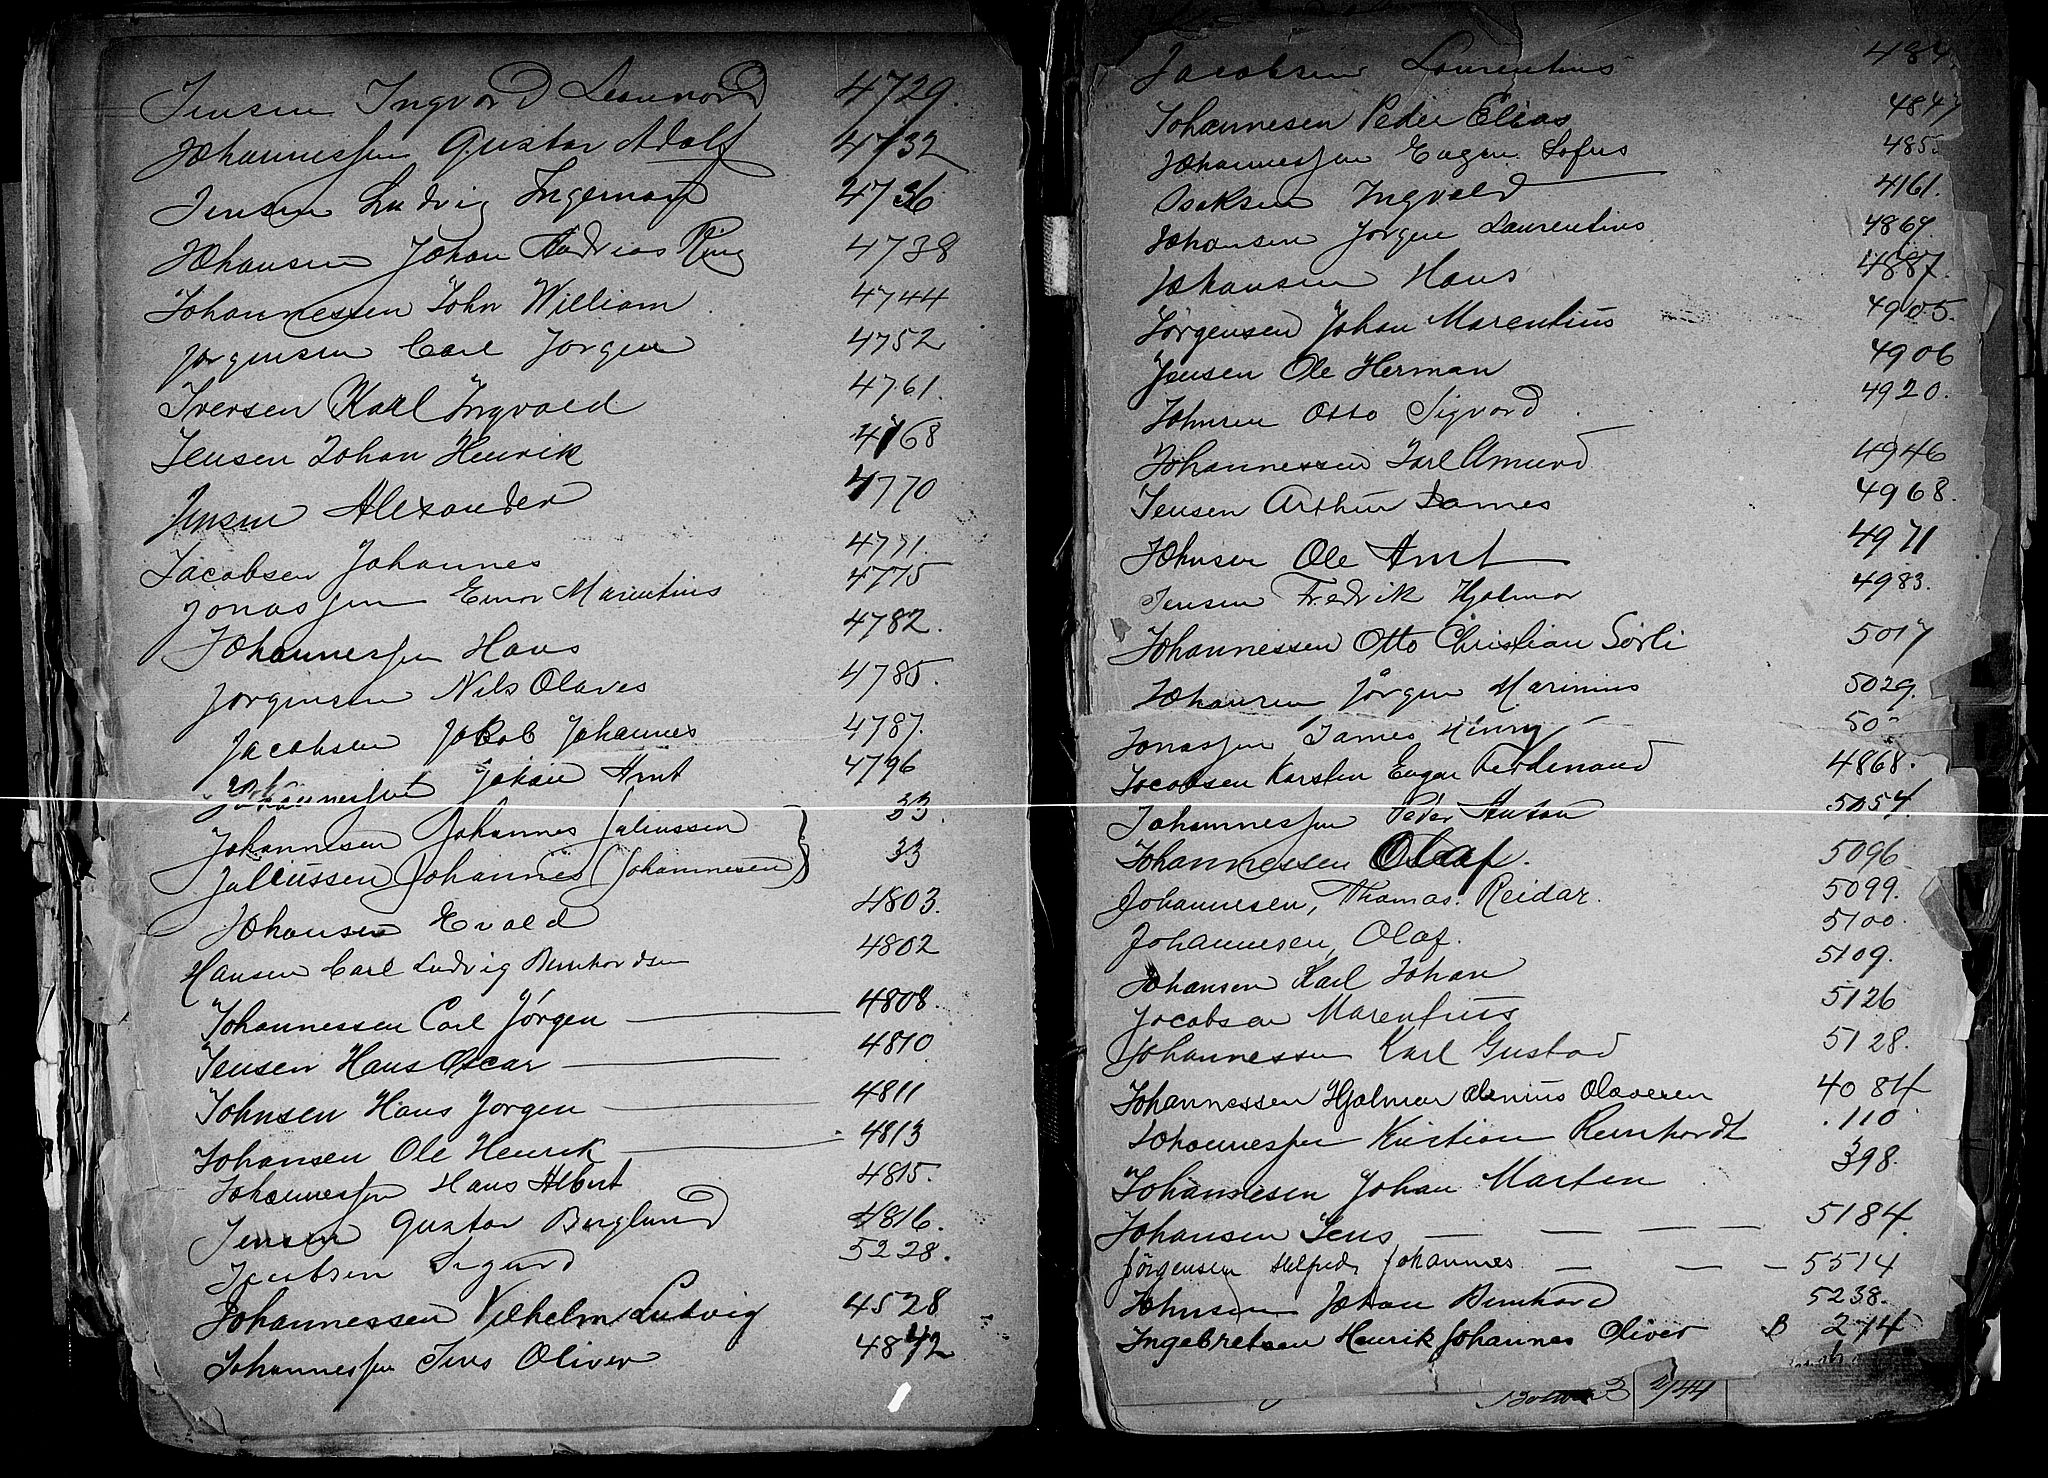 Jensen Ingvard Leonnard 4729.
Johannessen Gustav Adolf 4732
Jensen Ludvig Ingemar 4736
Johansen Johan Andreas Ring 4738
Johannessen John William 4744
Jørgensen Carl Jørgen 4752
Iversen Karl Ingvald 4761.
Jensen Johan Henrik 4768
Jensen Alexander 4770
Jacobsen Johannes 4771.
Jonassen Einar Marentius 4775
Johannessen Hans 4782.
Jørgensen Nils Olaves 4785.
Jacobsen Jakob Johannes 4787.
Johannessen Johan Arnt 4796
Johannesen Johannes Juliussen 33.
Juliussen Johannes (Johannesen) 33
Johansen Evald 4803.
Hansen Carl Ludvig Bernhardsen 4802
Johannessen Carl Jørgen 4808.
Jensen Hans Oscar 4810
Johnsen Hans Jørgen 4811
Johansen Ole Henrik 4813
Johannessen Hans Albert 4815.
Jensen Gustav Berglund 4816.
Jacobsen Sigurd 5228.
Johannessen Vilhelm Ludvig 4528
Johannessen Jens Oliver 4842
Jacobsen Laurentius
Johannesen Peder Elias 4847
Johannessen Eugen Sofus 485
Isaksen Ingvald 4161.
Johansen Jørgen Laurentius 4867.
Johansen Hans 4887.
Jørgensen Johan Marentius 4905.
Jensen Ole Herman 4906
Johnsen Otto Sigvard 4920.
Johannessen Karl Amund 4946
Jensen Arthur James 4968.
Johnsen Ole Arnt 4971
Jensen Fredrik Hjalmar 4983.
Johannessen Otto Christian Sørli 5017
Johansen Jørgen Marinius 5029.
Jonassen James Henry 50
Jacobsen Karsten Edgar Ferdinand 4868.
Johannessen Peder Anton 5054.
Johannessen Olaf. 5096
Johannesen, Thomas Reidar. 5099.
Johannesen, Olaf. 5100.
Johansen Karl Johan 5109.
Jacobsen Marentius 5126
Johannessen Karl Gustav 5128.
Johannessen Hjalmar Olenius Olavesen 4084
Johannessen Kristian Reinhardt 110
Johannesen Johan Marten 398.
Johansen Jens — — — — 5184.
Jørgensen Halfred Johannes — — — 5514
Johnsen Johan Bernhard 5238.
Ingebretsen Henrik Johannes Oliver B 274.
2/44